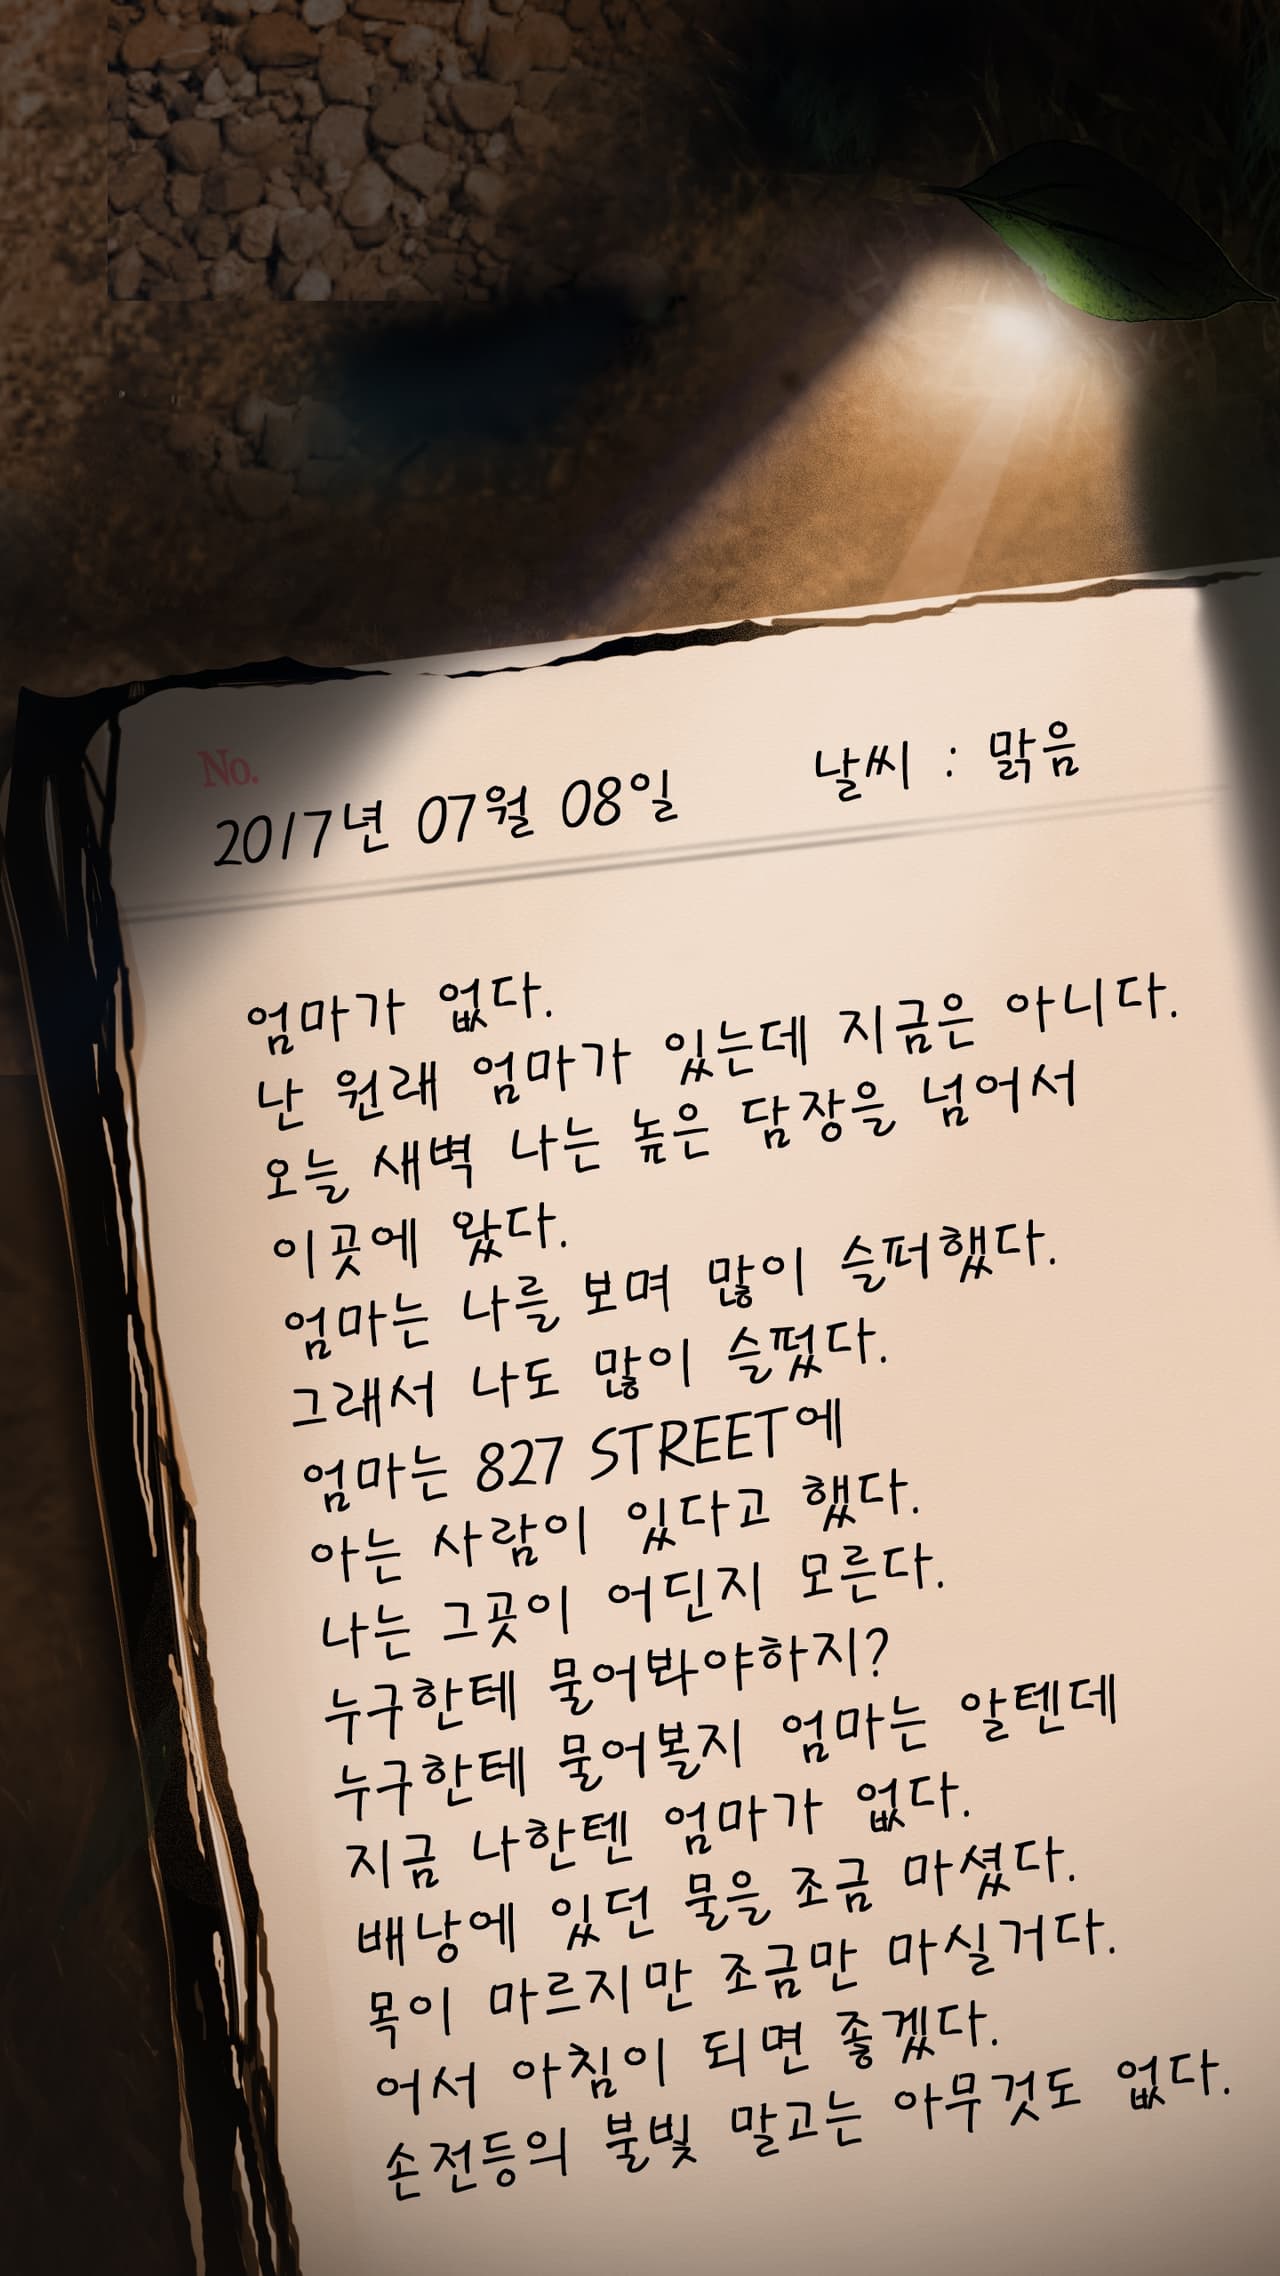 No.
2017년 07월 08일 날씨 : 맑음
엄마가 없다.
난 원래 엄마가 있는데 지금은 아니다.
오늘 새벽 나는 높은 담장을 넘어서
이곳에 왔다.
엄마는 나를 보며 많이 슬퍼했다.
그래서 나도 많이 슬펐다.
엄마는 827 STREET에
아는 사람이 있다고 했다.
나는 그곳이 어딘지 모른다.
누구한테 물어봐야하지?
누구한테 물어볼지 엄마는 알텐데
지금 나한텐 엄마가 없다.
배낭에 있던 물을 조금 마셨다.
목이 마르지만 조금만 마실거다.
어서 아침이 되면 좋겠다.
손전등의 불빛 말고는 아무것도 없다.